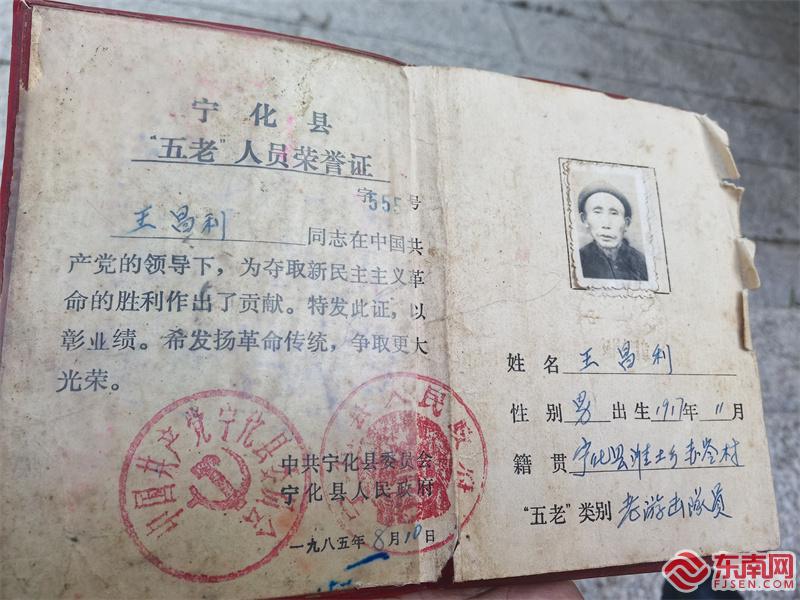 宁化县
“五老”人员荣誉证
字555号
王昌利 同志在中国共
产党的领导下，为夺取新民主主义革
命的胜利作出了贡献。特发此证，以
彰业绩。希发扬革命传统，争取更大
光荣。
中国共产党宁化县委员会
中共宁化县委员会
宁化县人民政府
一九八五年8月10日
姓名 王昌利
性别 男 出生 1917年11月
籍贯 宁化县淮土乡赤岭村
“五老”类别 老游击队员
东南网
FJSEN.COM